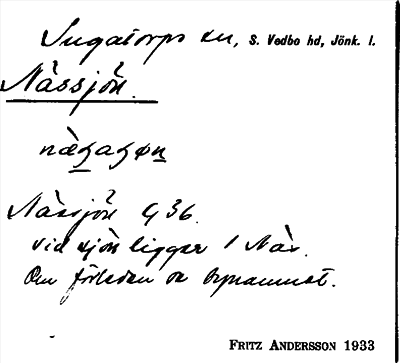 Ingatorps sn, S. Vedbo hd, Jönk. l.
Nässjön.
Nässjön G 36.
vid sjön ligger 1 Näs.
Om förleden se bynamnet.
FRITZ ANDERSSON 1933